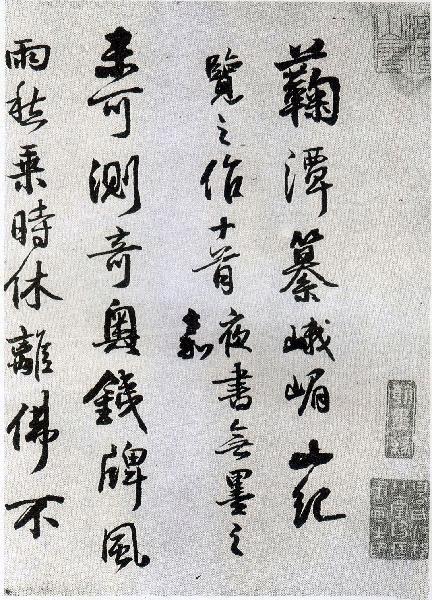 蘜潭纂峨嵋山紀
覽之作十首夜書無墨之
未可測奇奧鐵牌風
雨乘時休離佛不